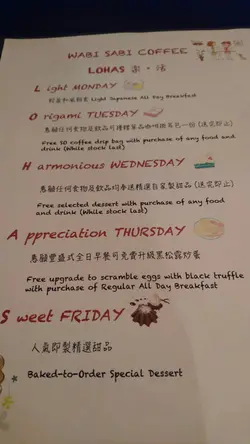 WABI SABI COFFEE
LOHAS 樂・活
Light MONDAY
輕盈和風朝食 Light Japanese All Day Breakfast
Origami TUESDAY
惠顧任何食物及飲品可獲精品咖啡掛耳包一份 (送完即止)
Free 10 coffee drip bag with purchase of any food
and drink (While stock last)
Harmonious WEDNESDAY
惠顧任何食物及飲品均奉送精選自家製甜品 (送完即止)
Free selected dessert with purchase of any food
and drink (While stock last)
Appreciation THURSDAY
惠顧豐盛式全日早餐可免費升級黑松露炒蛋
Free upgrade to scramble eggs with black truffle
with purchase of Regular All Day Breakfast
Sweet FRIDAY
人氣即製精選甜品
Baked-to-Order Special Dessert